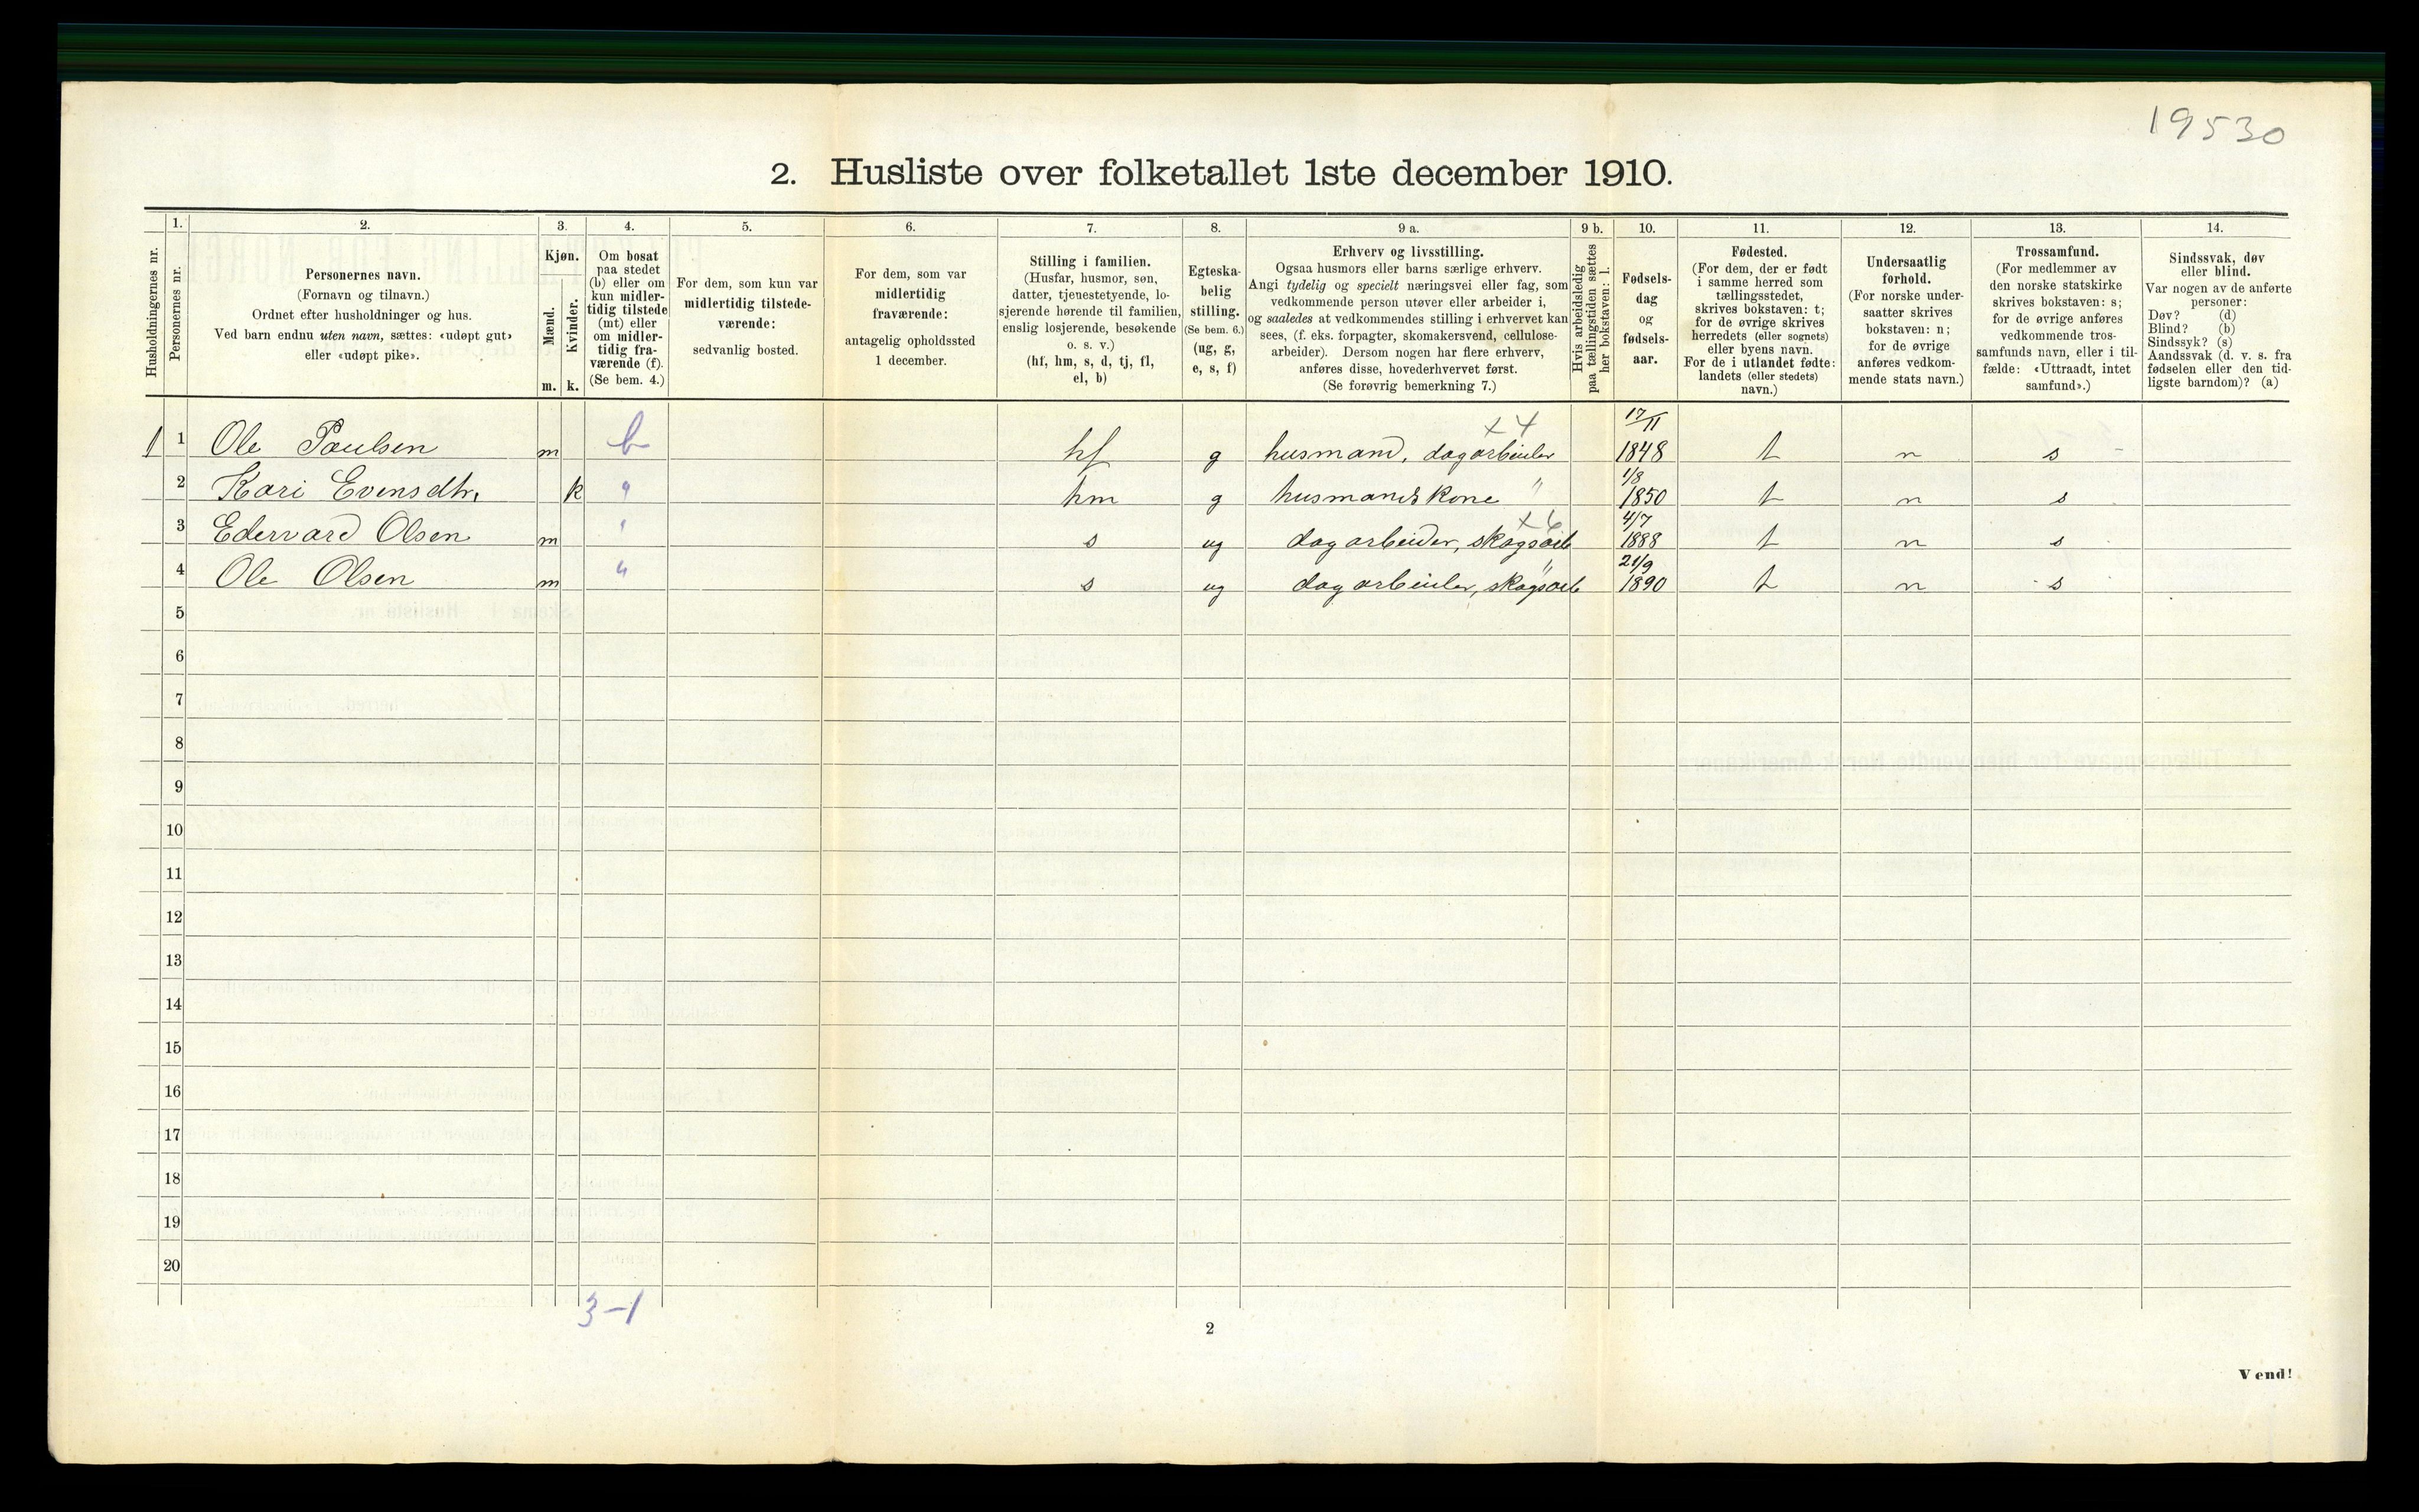 19530
2. Husliste over folketallet 1ste december 1910.
Husholdningernes nr.
1.
Personernes nr.
2.
Personernes navn.
(Fornavn og tilnavn.)
Ordnet efter husholdninger og hus.
Ved barn endnu uten navn, sættes: «udøpt gut»
eller «udøpt pike».
3.
Kjøn.
Mænd.
Kvinder.
m. k.
4.
Om bosat
paa stedet
(b) eller om
kun midler-
tidig tilstede
(mt) eller
om midler-
tidig fra-
værende (f).
(Se bem. 4.)
5.
For dem, som kun var
midlertidig tilstede-
værende:
sedvanlig bosted.
6.
For dem, som var
midlertidig
fraværende:
antagelig opholdssted
1 december.
7.
Stilling i familien.
(Husfar, husmor, søn,
datter, tjenestetyende, lo-
sjerende hørende til familien,
enslig losjerende, besøkende
o. s. v.)
(hf, hm, s, d, tj, fl,
el, b)
8.
Egteska-
belig
stilling.
(Se bem. 6.)
(ug, g,
e, s, f)
9 a.
Erhverv og livsstilling.
Ogsaa husmors eller barns særlige erhverv.
Angi tydelig og specielt næringsvei eller fag, som
vedkommende person utøver eller arbeider i,
og saaledes at vedkommendes stilling i erhvervet kan
sees, (f. eks. forpagter, skomakersvend, cellulose-
arbeider). Dersom nogen har flere erhverv,
anføres disse, hovederhvervet først.
(Se forøvrig bemerkning 7.)
9 b.
Hvis arbeidsledig
paa tællingstiden sættes
her bokstaven: l.
10.
Fødsels-
dag
og
fødsels-
aar.
11.
Fødested.
(For dem, der er født
i samme herred som
tællingsstedet,
skrives bokstaven: t;
for de øvrige skrives
herredets (eller sognets)
eller byens navn.
For de i utlandet fødte:
landets (eller stedets)
navn.)
12.
Undersaatlig
forhold.
(For norske under-
saatter skrives
bokstaven: n;
for de øvrige
anføres vedkom-
mende stats navn.)
13.
Trossamfund.
(For medlemmer av
den norske statskirke
skrives bokstaven: s;
for de øvrige anføres
vedkommende tros-
samfunds navn, eller i til-
fælde: «Uttraadt, intet
samfund».)
14.
Sindssvak, døv
eller blind.
Var nogen av de anførte
personer:
Døv? (d)
Blind? (b)
Sindssyk? (s)
Aandssvak (d. v. s. fra
fødselen eller den tid-
ligste barndom)? (a)
x 4
1 1 Ole Paulsen m b hf g husmand, dagarbeider 17/11 1848 t n s
2 Kari Evensdtr. k " hm g husmandskone " 1/8 1850 t n s
x 6
3 Edervard Olsen m " s ug dagarbeider, skogsarb 4/7 1888 t n s
4 Ole Olsen m " s ug dagarbeider, skogsarb " 21/9 1890 t n s
5
6
7
8
9
10
11
12
13
14
15
16
17
18
19
20
3-1
2
Vend!